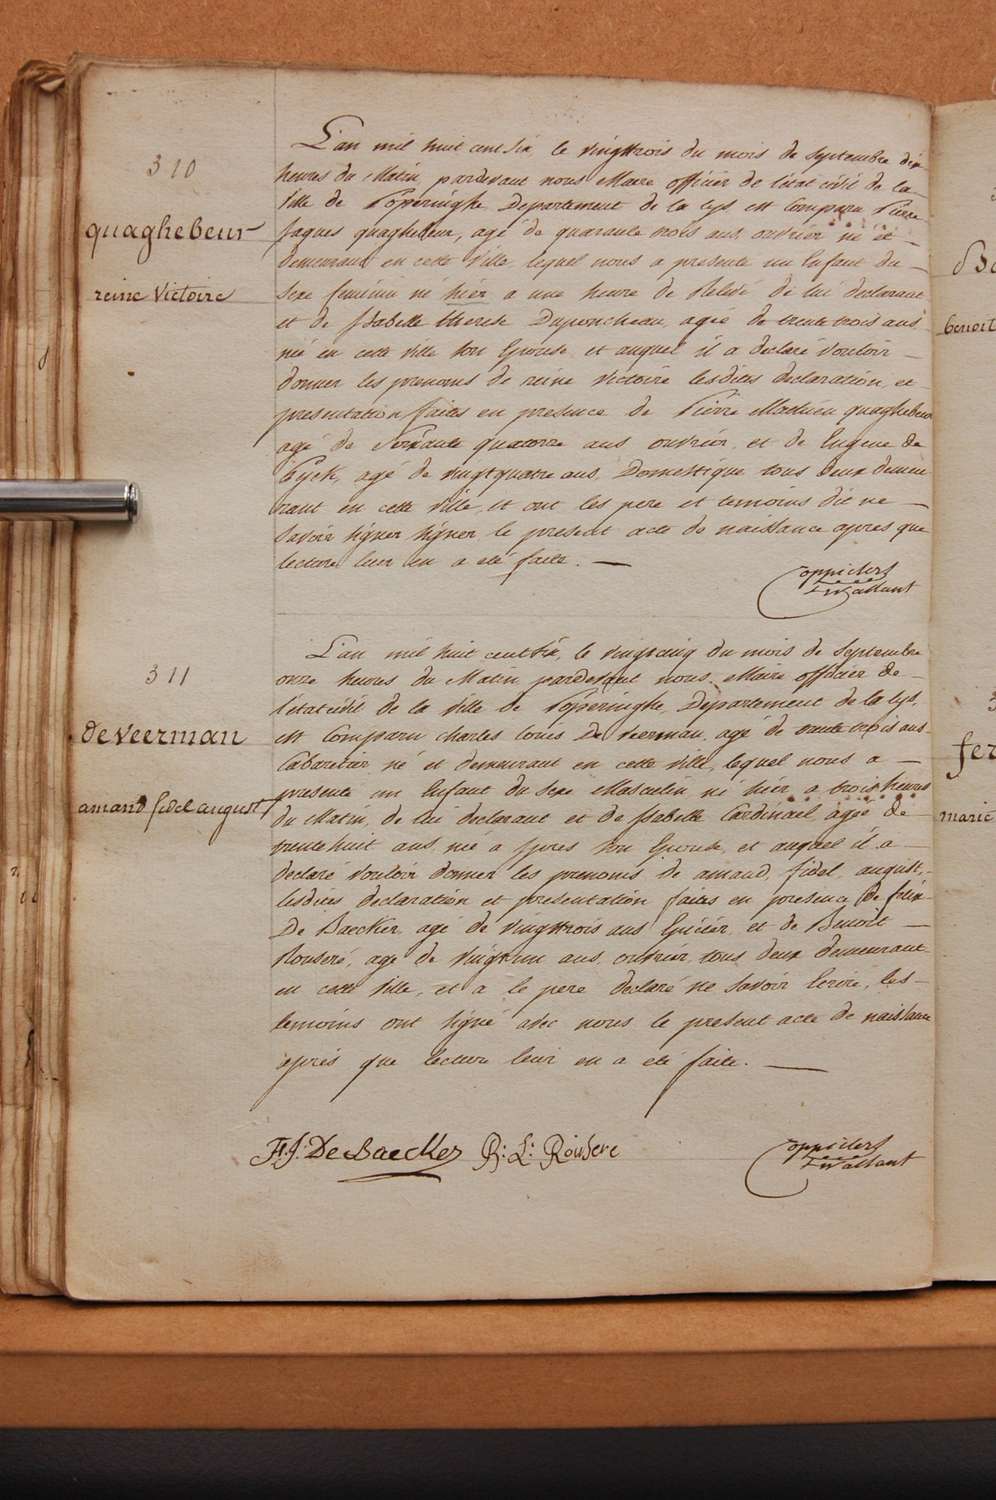 310
quaghebeur
reine Victoire
L'an mil huit cent six, le vingttrois du mois de septembre dix
heures du Matin, pardevant nous Maire officier de l'état civil de la
ville de Poperinghe, Departement de la Lys est Comparu Pierre
Jaques quaghebeur, agé de quarante trois ans ouvrier né et
demeurant en cette ville, lequel nous a presenté un Enfant du
sexe feminin né hier a une heure de Relevé de lui declarant
et de Isabelle therese Duponcheau, agée de trente trois ans
née en cette ville son Epouse, et auquel il a declaré vouloir
donner les prenoms de reine victoire lesdites declaration et
presentation faites en presence de Pierre Mathieu quaghebeur
agé de Soixante quatorze ans ouvrier, et de Eugene de
Eyck, agé de vingtquatre ans, Domestique tous deux demeu
rant en cette ville, et ont les pere et temoins dit ne
savoir signer signer le present acte de naissance apres que
lecture leur en a eté faite.
Coppieters
T'Wallant
311
de veerman
amand fidel august
L'an mil huit cent six, le vingtcinq du mois de Septembre
onze heures du Matin pardevant nous, Maire officier de
l'état civil de la ville de Poperinghe, Departement de la Lys,
est Comparu charles Louis De veerman, agé de trente trois ans
Cabaretier né et demeurant en cette ville, lequel nous a
presenté un Enfant du sexe Masculin né hier a trois heures
du Matin, de lui declarant et de Isabelle Cardinael agée de
trente huit ans, née a ypres son Epouse, et auquel il a
declaré vouloir donner les prenoms de amand, fidel, august,
lesdites declaration et presentation faites en presence de felix
De Baecker, agé de vingttrois ans Epicier, et de Benoit
Rouseré, agé de vingt un ans, ouvrier, tous deux demeurant
en cette ville, et a le pere declaré ne savoir Ecrire, les
temoins ont signé avec nous le present acte de naissance
après que lecture leur en a eté faite.
F. J. De Baecker B: L: Rousere
Coppieters
T'Wallant
Ba
benoit
fer
marie